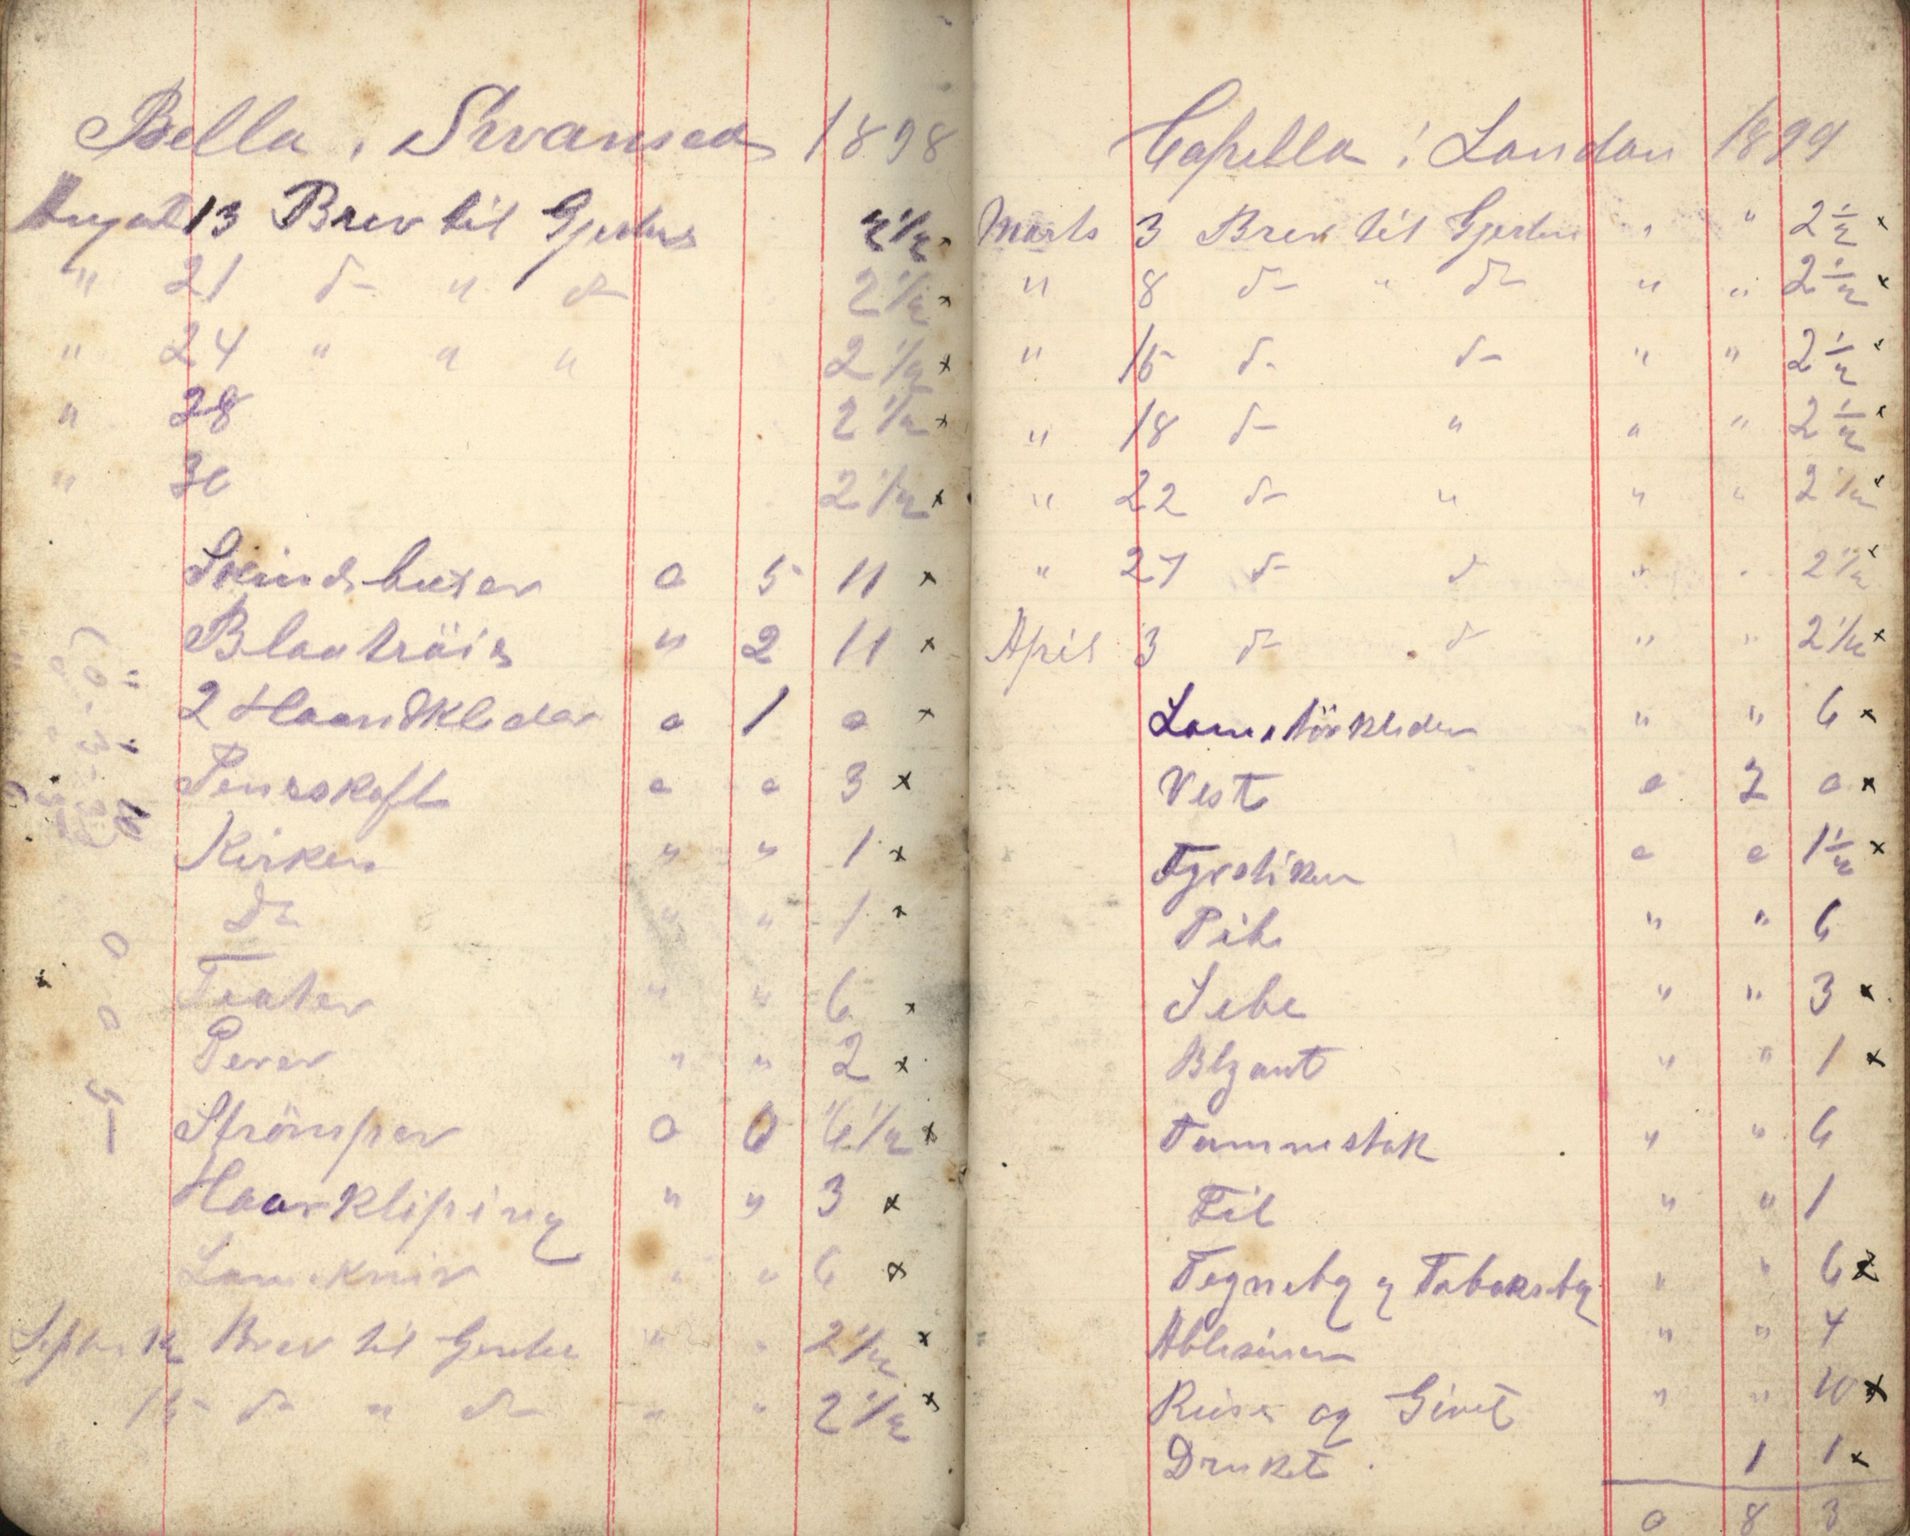 Bella i Svansea 1898
August 13 Brev til Gjertru 2 1/2 x
" 21 do " do 2 1/2 x
" 24 " " " 2 1/2 x
" 28 2 1/2 x
" 30 2 1/2 x
Skindsbuxer 0 5 11 x
Blaatröie " 2 11 x
2 Haandkleder 0 1 0 x
Penneskaft 0 0 3 x
Kirken " " 1 x
do " " 1 x
Teater " " 6 x
Perer " " 2 x
Strömper 0 0 6 1/2 x
Haarkliping " " 3 x
Lomekniv " " 6 x
Septbr 12 Brev til " " 2 1/2 x
15 do " do " " 2 1/2 x
Capella i London 1899
Marts 3 Brev til " " 2 1/2 x
" 8 do " do " " 2 1/2 x
" 15 do do " " 2 1/2 x
" 18 do " " " 2 1/2 x
" 22 do " " " 2 1/2 x
" 27 do do " " 2 1/2 x
April 3 do do " " 2 1/2 x
Lometörkleder " " 6 x
Vest 0 2 0 x
Fyrstikker 0 0 1 1/2 x
Pibe " " 6
Sebe " " 3 x
Blyant " " 1 x
Tommestok " " 6
Fil " " 1
Tegnebg og Tobaksbg " " 6 x
Ablesiner " " 4
Reise og Givet " " 10 x
Druket 1 1 x
0 8 3